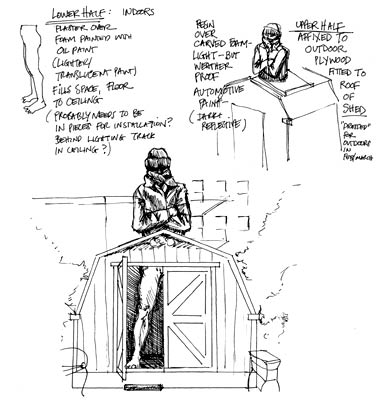 LOWER HALF: INDOORS
PLASTER OVER
FOAM PAINTED WITH
OIL PAINT
(LIGHTER/
TRANSLUCENT PAINT)
FILLS SPACE, FLOOR
TO CEILING
(PROBABLY NEEDS TO BE
IN PIECES FOR INSTALLATION?
BEHIND LIGHTING TRACK
IN CEILING?)
RESIN
OVER
CARVED FOAM -
LIGHT - BUT
WEATHER
PROOF
AUTOMOTIVE
PAINT -
(DARK &
REFLECTIVE)
UPPER HALF
AFFIXED TO
OUTDOOR
PLYWOOD
FITTED TO
ROOF
OF
SHED
FOR
OUTDOORS
IN
FEB/MARCH